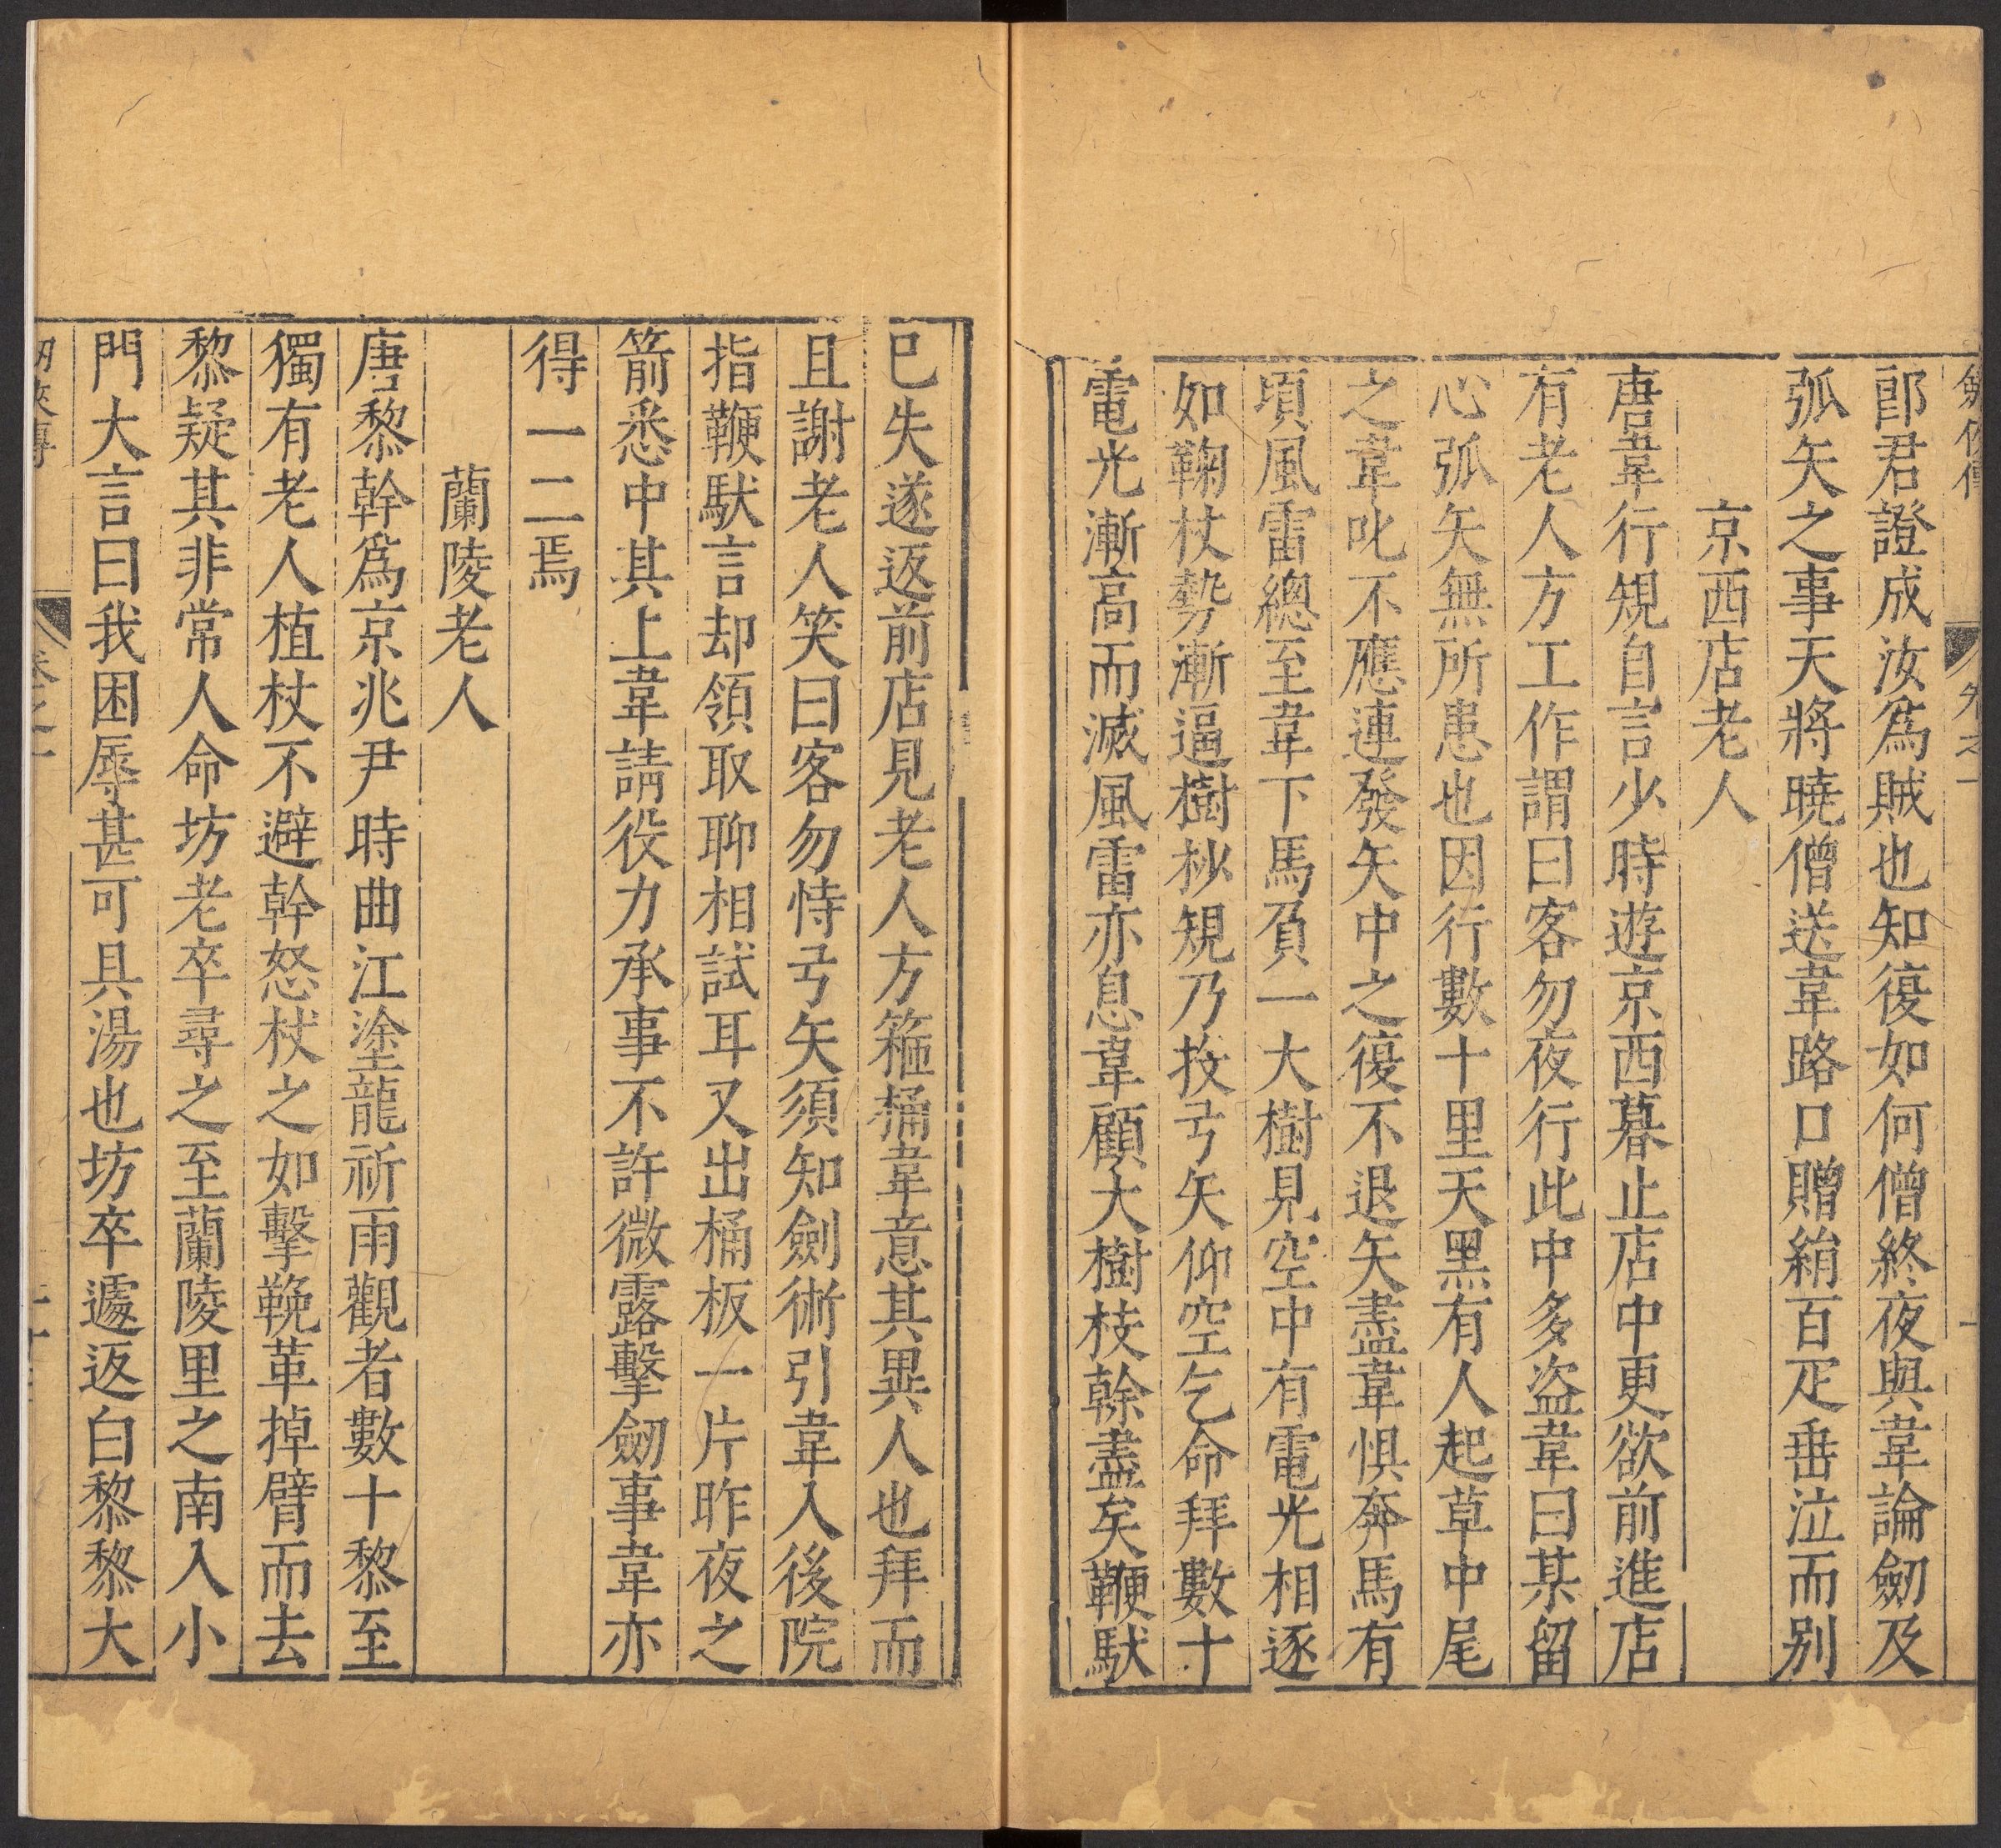 郎君證成汝爲賊也知復如何僧終夜與韋論劒及
弧矢之事天將曉僧送韋路口贈絹百疋垂泣而别
京西店老人
唐韋行規自言少時遊京西暮止店中更欲前進店
有老人方工作謂曰客勿夜行此中多盜韋曰某留
心弧矢無所患也因行數十里天黑有人起草中尾
之韋叱不應連發矢中之復不退矢盡韋惧奔馬有
頃風雷總至韋下馬負一大樹見空中有電光相逐
如鞠杖勢漸逼樹杪規乃投弓矢仰空乞命拜數十
電光漸高而滅風雷亦息韋顧大樹枝榦盡矣鞭馱
已失遂返前店見老人方箍桶韋意其異人也拜而
且謝老人笑曰客勿恃弓矢須知劍術引韋入後院
指鞭馱言却領取聊相試耳又出桶板一片昨夜之
箭悉中其上韋請役力承事不許微露擊劒事韋亦
得一二焉
蘭陵老人
唐黎幹爲京兆尹時曲江塗龍祈雨觀者數十黎至
獨有老人植杖不避幹怒杖之如擊鞔革掉臂而去
黎疑其非常人命坊老卒尋之至蘭陵里之南入小
門大言曰我困辱甚可具湯也坊卒遽返白黎黎大